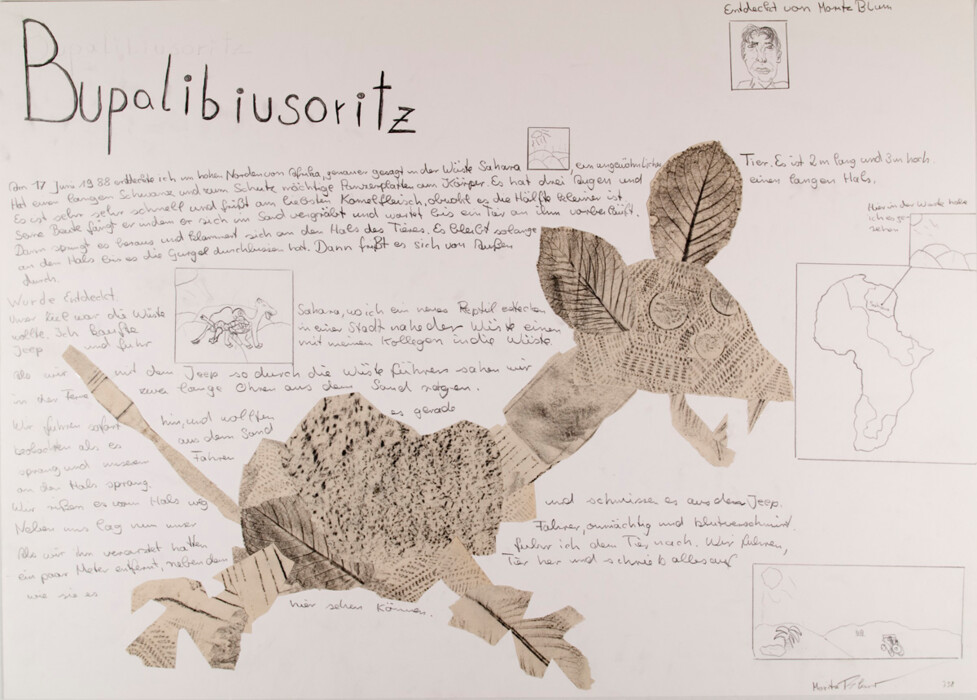 Entdeckt von Moritz Blum
Bupalibiusoritz
Am 17 Juni 1988 entdeckte ich im hohen Norden von Afrika, genauer gesagt in der Wüste Sahara, ein ungewöhnliches Tier. Es ist 2m lang und 3m hoch.
Hat einen langen Schwanz und zum Schutz mächtige Panzerplatten am Körper. Es hat drei Augen und einen langen Hals.
Es ist sehr sehr schnell und frißt am liebsten Kamelfleisch, obwohl es die Hälfte kleiner ist.
Seine Beute fängt er indem er sich im Sand vergräbt und wartet bis ein Tier an ihm vorbeiläuft.
Dann springt es heraus und klammert sich an den Hals des Tieres. Es bleibt solange
an den Hals bis es die Gurgel durchbissen hat. Dann frißt es sich von Außen
durch.
Hier in der Wüste habe
ich es gesehen
Wurde Entdeckt.
Unser Ziel war die Wüste Sahara, wo ich ein neues Reptil entdecken
wollte. Ich kaufte in einer Stadt nahe der Wüste einen
Jeep und fuhr mit meinen Kollegen in die Wüste.
Als wir mit dem Jeep so durch die Wüste führen sahen wir
in der Ferne zwei lange Ohren aus dem Sand ragen.
Wir fuhren sofort hin, und wollten es gerade
beobachten als es aus dem Sand
sprang und unserem Fahrer
an den Hals sprang.
Wir rißen es vom Hals weg und schmissen es aus dem Jeep.
Neben uns lag nun unser Fahrer, onmächtig und blutverschmirt.
Als wir ihn verarztet hatten fuhr ich dem Tier nach. Wir fuhren,
ein paar Meter entfernt, neben dem Tier her und schrieb alles auf
wie sie es hier sehen können.
Moritz Blum